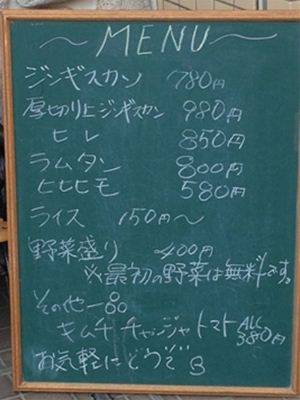 ～MENU～
ジンギスカン 780円
厚切り上ジンギスカン 980円
ヒレ 850円
ラムタン 800円
ヒヒヒモ 580円
ライス 150円～
野菜盛り 400円
※最初の野菜は無料です。
その他一品
キムチ チャンジャ トマト ALL 380円
お気軽にどうぞ